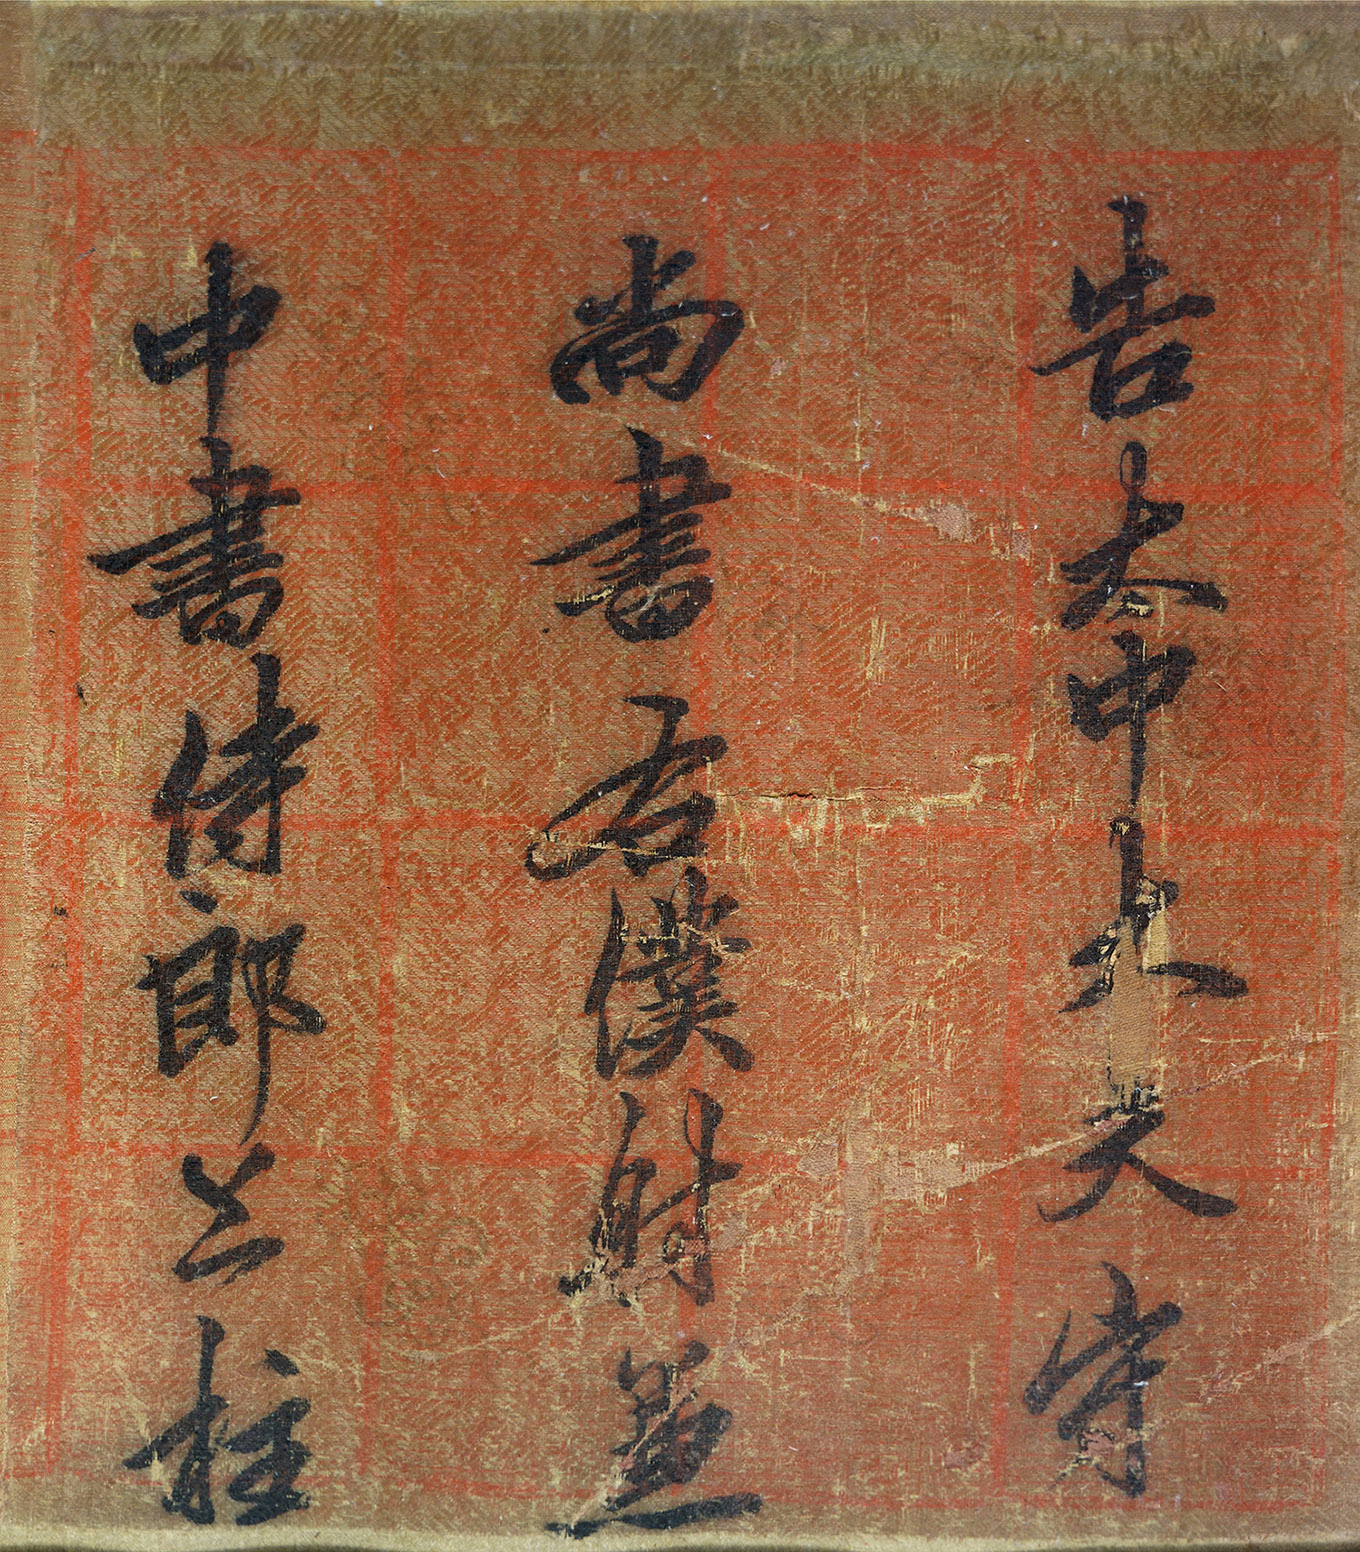 告太中大夫守
尚書右僕射兼
中書侍郎上柱